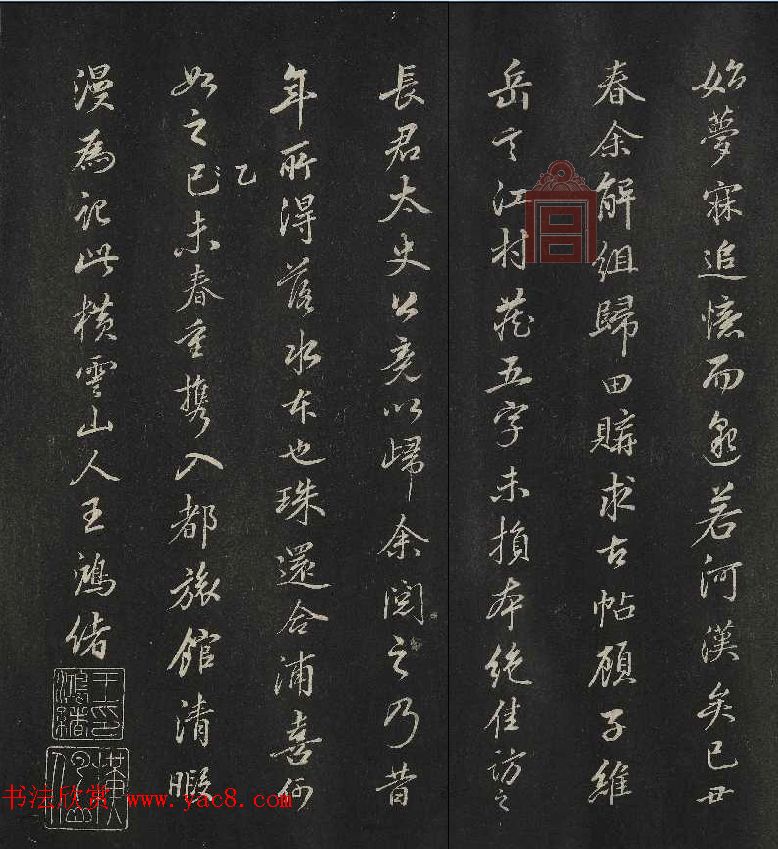 始夢寐追憶而邈若河漢矣己丑
春余解組歸田購求古帖顧子維
岳言江村藏五字未損本絕佳訪之
長君太史公竟以歸余閱之乃昔
年所得落水本也珠還合浦喜何
如之己未春重携入都旅館清暇
乙
漫為記此橫雲山人王鴻緒
王鴻緒印
书法欣赏 www.yac8.com